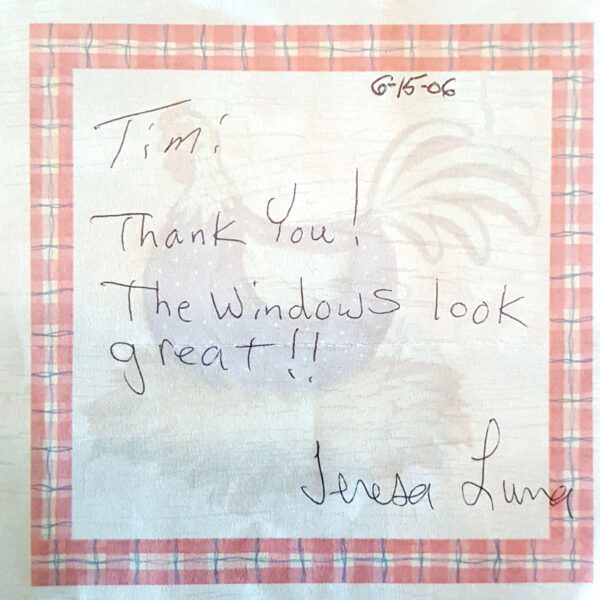 6-15-06
Tim:
Thank You!
The Windows look
great!!
Teresa Luna